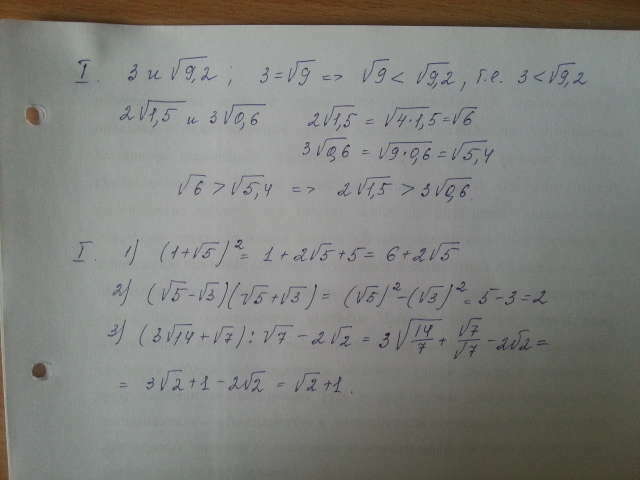 I. 3 и √9,2 ; 3 = √9 => √9 < √9,2 , т.е. 3 < √9,2
2√1,5 и 3√0,6 2√1,5 = √4·1,5 = √6
3√0,6 = √9·0,6 = √5,4
√6 > √5,4 => 2√1,5 > 3√0,6.
I. 1) (1+√5)² = 1 + 2√5 + 5 = 6 + 2√5
2) (√5-√3)(√5+√3) = (√5)² - (√3)² = 5 - 3 = 2
3) (3√14 + √7) : √7 - 2√2 = 3√14/7 + √7/√7 - 2√2 =
= 3√2 + 1 - 2√2 = √2 + 1.